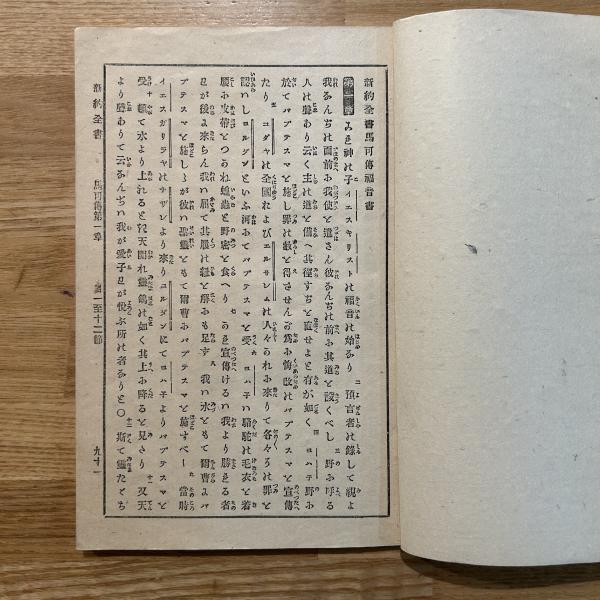 新約全書馬可傳福音書
第一章 これ神の子イエスキリストの福音の始なり 二 預言者の録して視よ
我なんぢの面前に我使を遣さん彼なんぢの前に其道を設くべし 三 野に呼る
人の聲あり云く主の道を備へ其徑すぢを直せよと有が如く 四 ヨハ子野に
於てバプテスマを施し罪の赦を得させんが爲に悔改のバプテスマを宣傳
たり 五 ユダヤの全國およびエルサレムの人々かれに來りて各々その罪を
認しヨルダンといふ河にてバプテスマを受く 六 ヨハ子の駱駝の毛衣を着
腰に皮帶をつかね蝗蟲と野蜜を食へり 七 かれ宣傳けるの我より勝れる者
我が後に來らん我の屈て其履の紐を解にも足ず 八 我の水をもて爾曹にバ
プテスマを施しゝが彼の聖靈をもて爾曹にバプテスマを施すべし 九 當時
イエスガリラヤのナザレより來りヨルダンにてヨハ子よりバプテスマを
受 十 頓て水より上れるとき天開れ靈鴿の如く其上に降るを見たり 十一 又天
より聲ありて云なんぢの我が愛子わが悦ぶ所の者なりと〇 十二 斯て靈たゞち
新約全書 馬可傳第一章 一至十二節 九十一